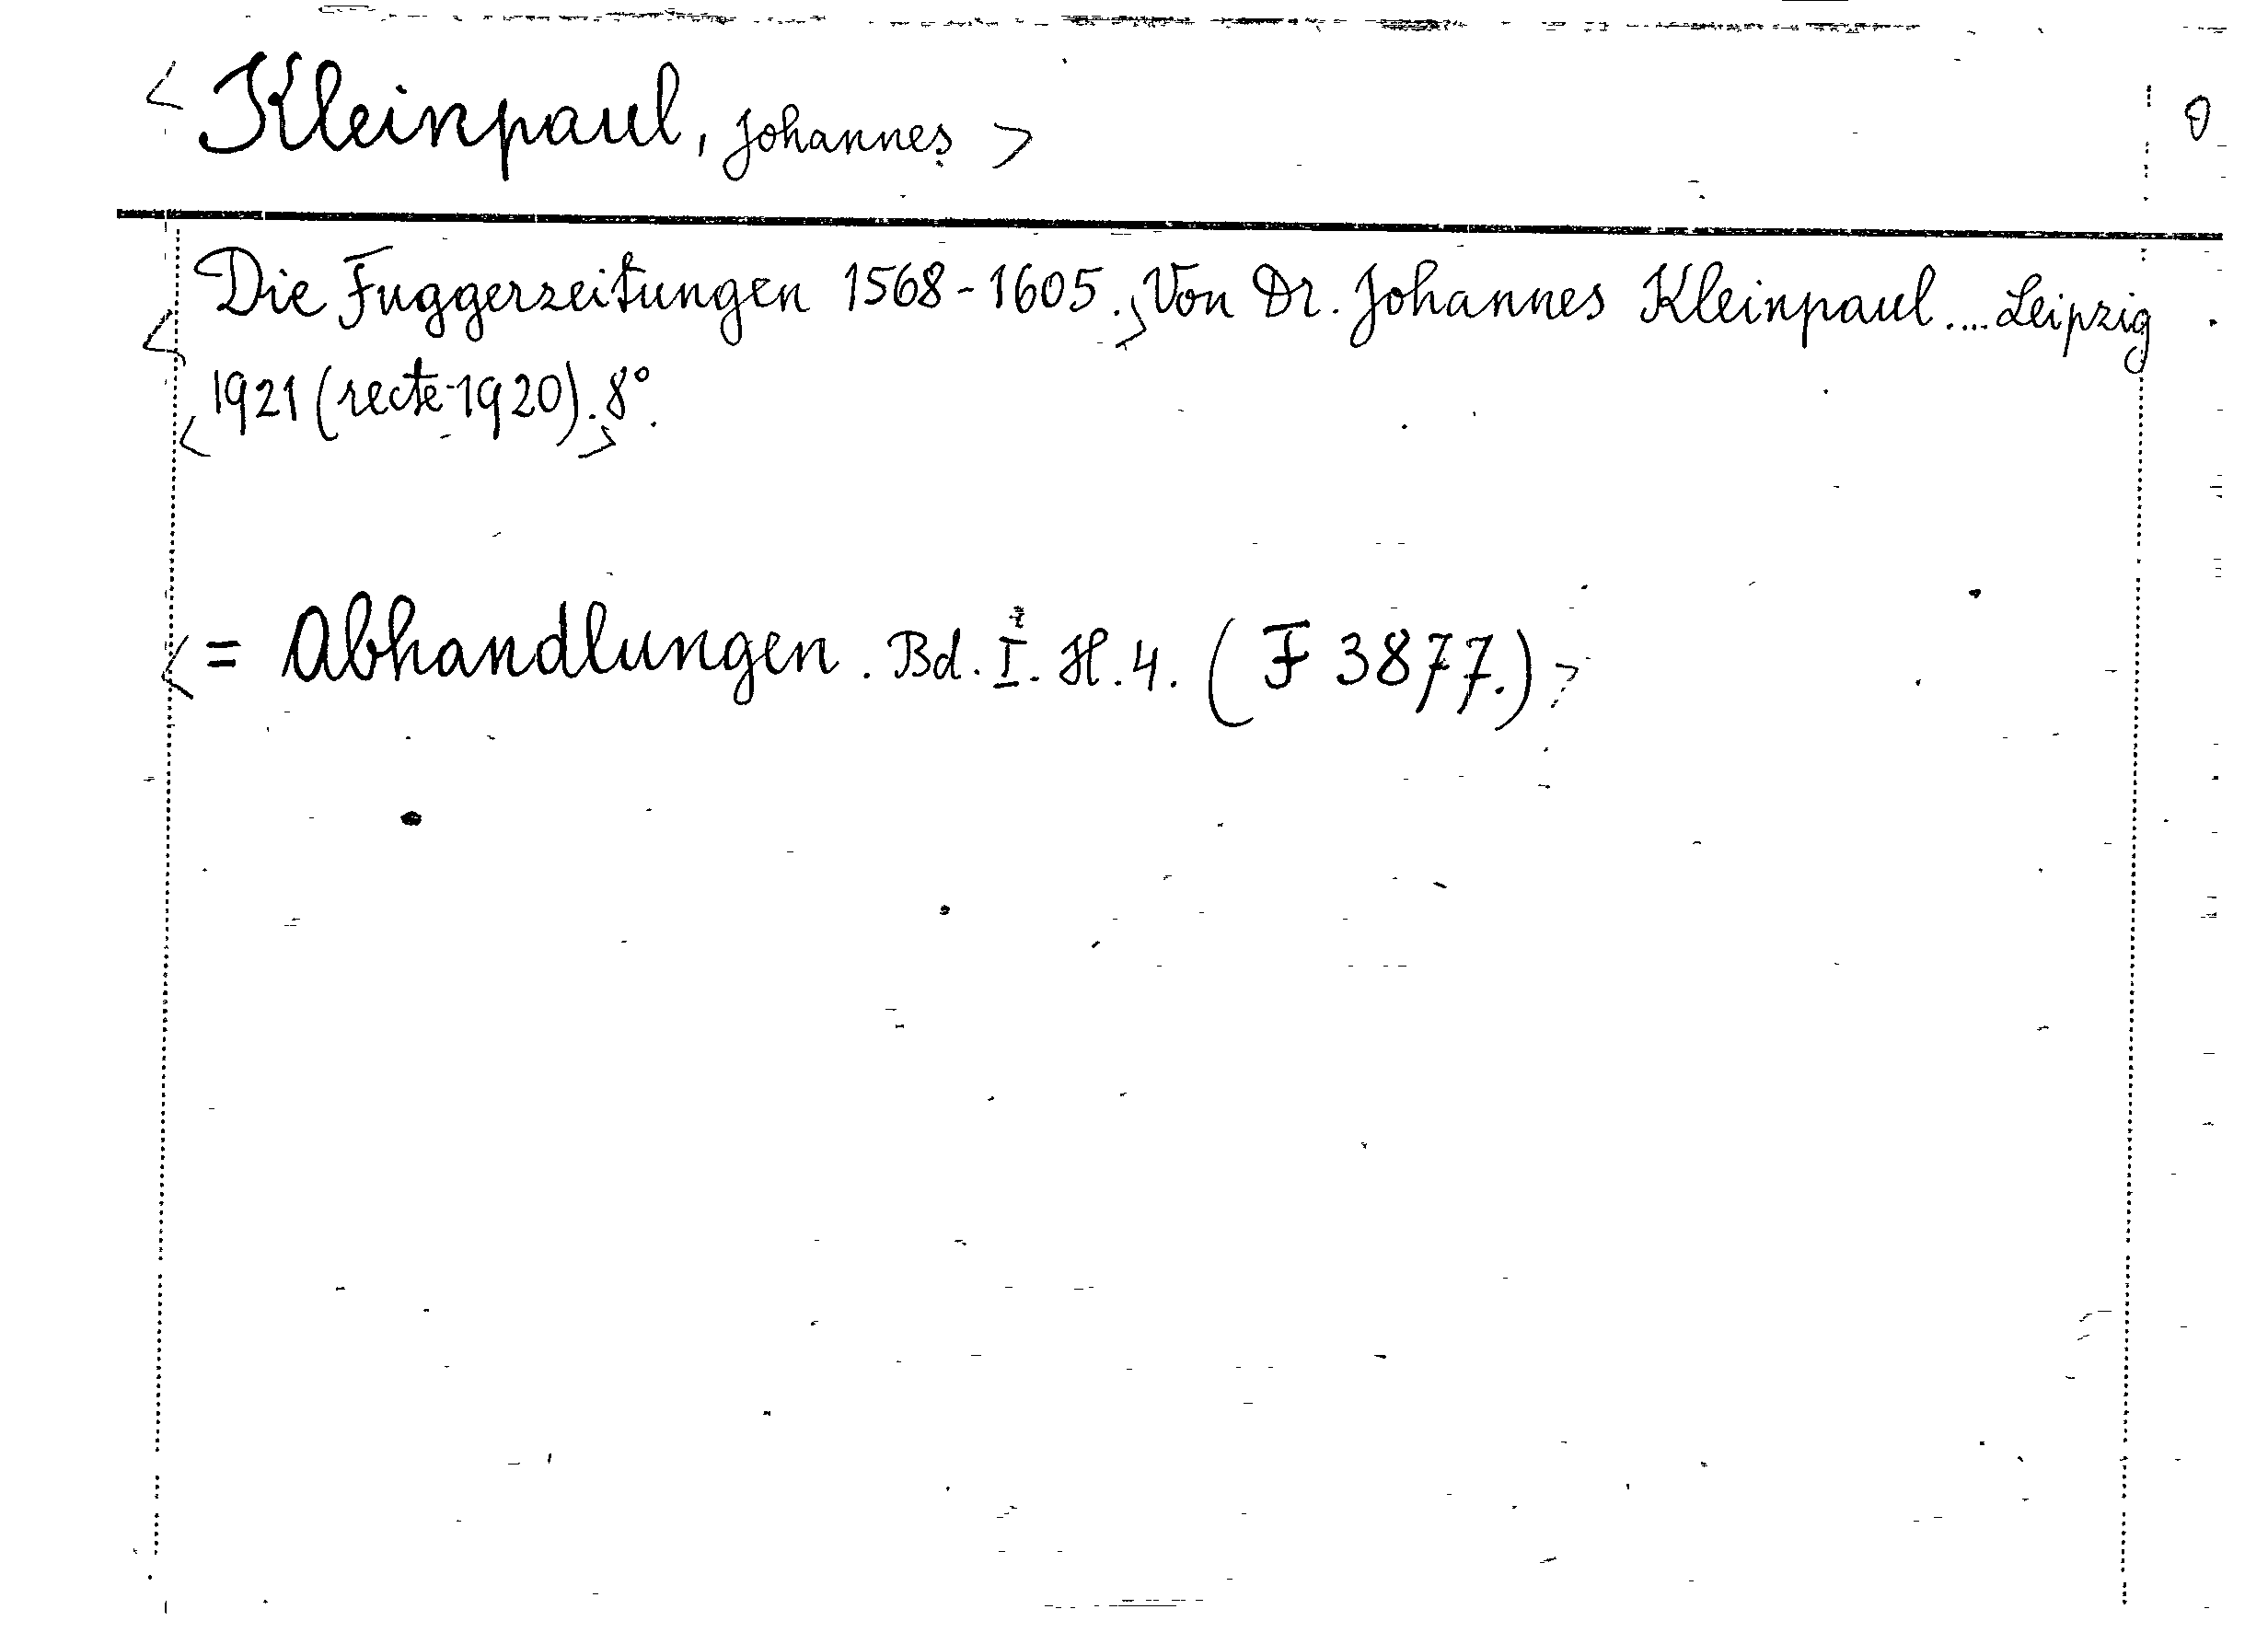 < Kleinpaul, Johannes >
< Die Fuggerzeitungen 1568-1605.> Von Dr. Johannes Kleinpaul.... Leipzig
< 1921 (recte 1920).> 8°.
< = Abhandlungen. Bd. I. H. 4. (F 3877.) >